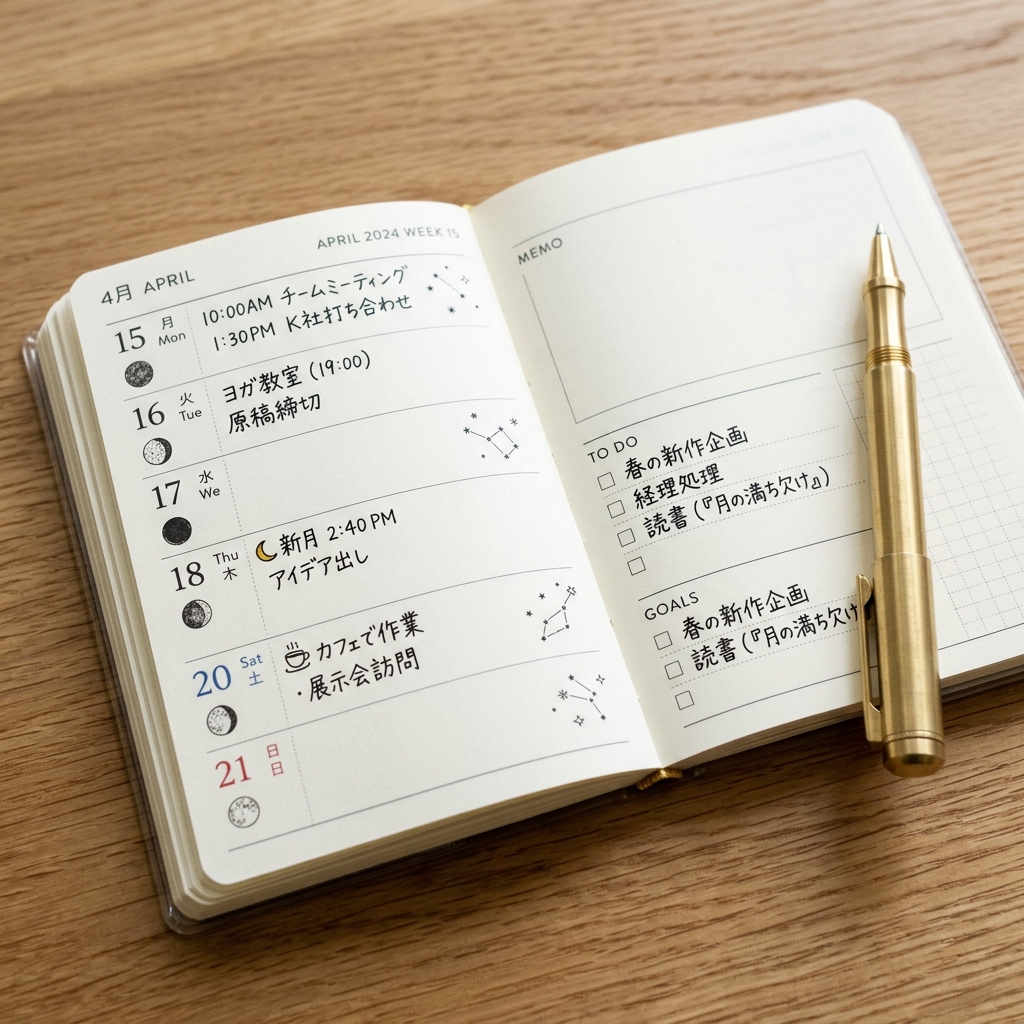 4月 APRIL
APRIL 2024 WEEK 15
15 月 Mon
10:00AM チームミーティング
1:30PM K社打ち合わせ
16 火 Tue
ヨガ教室 (19:00)
原稿締切
17 水 We
18 Thu 木
新月 2:40 PM
アイデア出し
20 Sat 土
カフェで作業
・展示会訪問
21 日 日
MEMO
TO DO
春の新作企画
経理処理
読書 (『月の満ち欠け』)
GOALS
春の新作企画
読書 (『月の満ち欠け